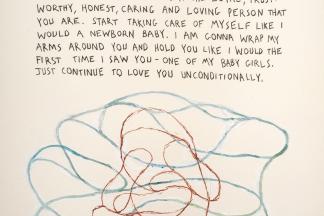 WORTHY, HONEST, CARING AND LOVING PERSON THAT
YOU ARE. START TAKING CARE OF MYSELF LIKE I
WOULD A NEWBORN BABY. I AM GONNA WRAP MY
ARMS AROUND YOU AND HOLD YOU LIKE I WOULD THE
FIRST TIME I SAW YOU - ONE OF MY BABY GIRLS.
JUST CONTINUE TO LOVE YOU UNCONDITIONALLY.